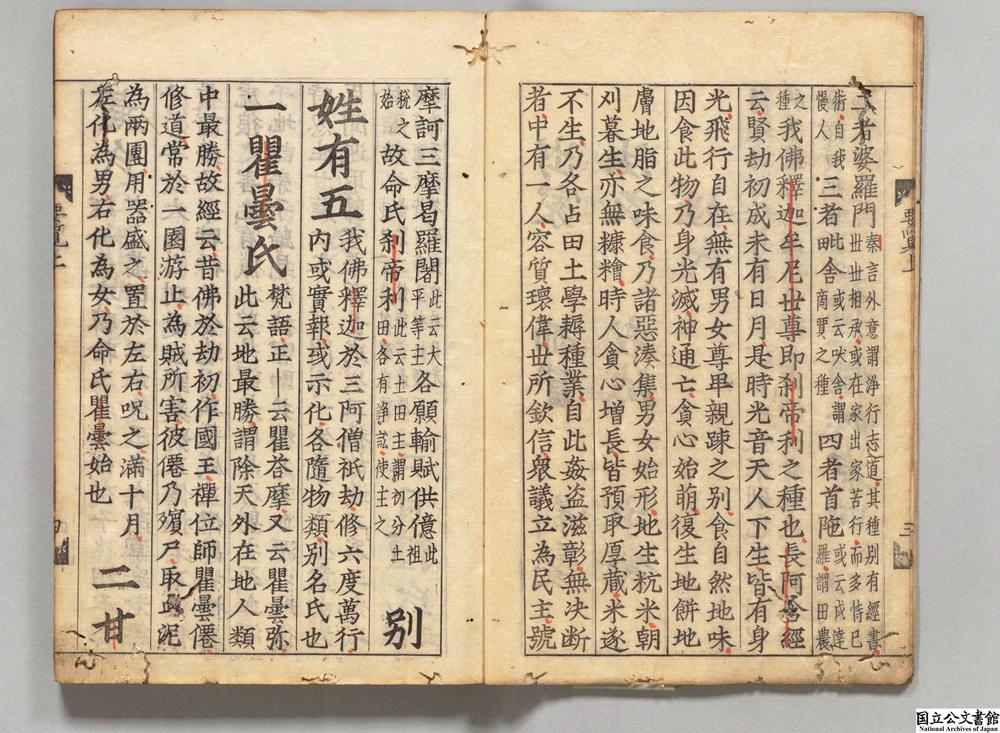 二者婆羅門秦言外意謂淨行志道其種別有經書
世世相承或在家出家苦行而多恃已
術自我
慢人三者田舍此或云吠舍謂
商賈之種四者首陁或云戍達
羅謂田農
之
種我佛釋迦牟尼世尊即刹帝利之種也長阿含經
云賢劫初成未有日月是時光音天人下生皆有身
光飛行自在無有男女尊卑親踈之别食自然地味
因食此物乃身光滅神通亡貪心始萌復生地餅地
膚地脂之味食乃諸惡湊集男女始形地生粇米朝
刈暮生亦無糠糩時人貪心增長皆預取厚藏米遂
不生乃各占田土學耨種業自此姦盗滋彰無决断
者中有一人容質瓌偉世所欽信衆議立為民主號
摩訶三摩曷羅闍此云大
平等王各願輸賦供億此
祖
税之
始故命氏刹帝利此云土田主謂初分土
田各有諍訟使主之 别
姓有五我佛釋迦於三阿僧祇劫修六度萬行
内或實報或示化各隨物類别名氏也
一瞿曇氏梵語正云瞿荅摩又云瞿曇弥
此云地最勝謂除天外在地人類
中最勝故經云昔佛於劫初作國王禪位師瞿曇僊
修道常於一園游止為賊所害彼僊乃殯尸取血泥
為兩團用器盛之置於左右呪之滿十月
左化為男右化為女乃命氏瞿曇始也 二甘
要覽上
三
要覽上
国立公文書館
National Archives of Japan